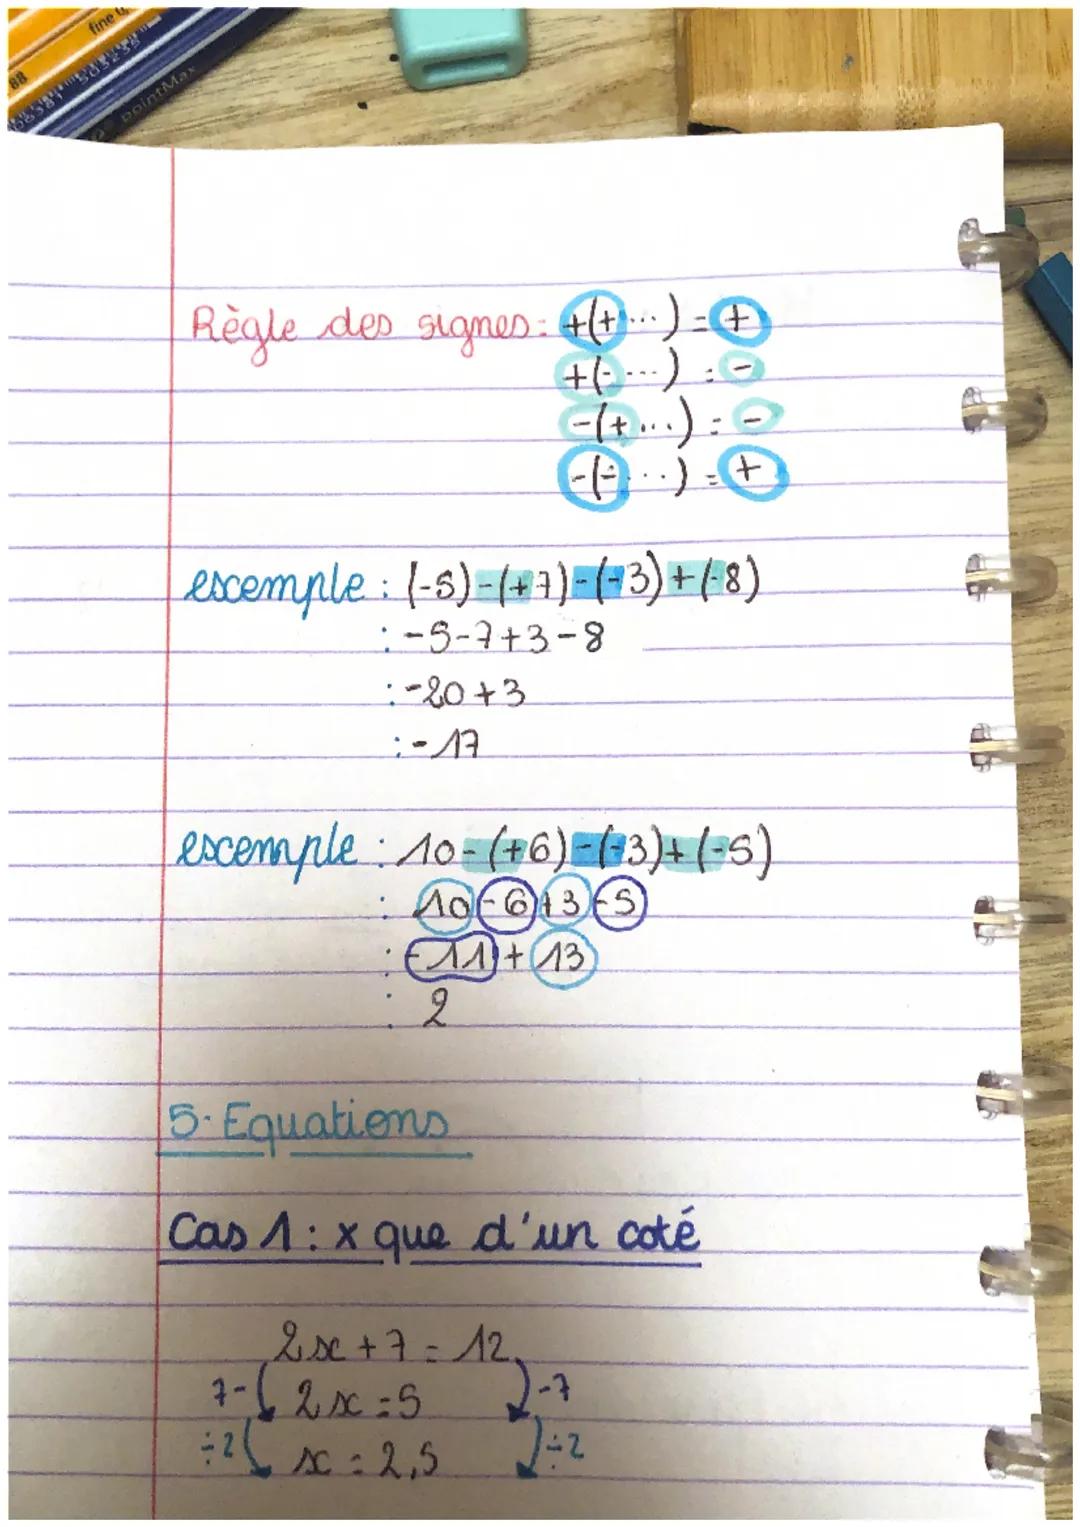 fine
88
pointMax
Règle des signes: +(+...) = +
+(-...) = -
-(+...) = -
-(-...) = +
exemple : (-5)-(+7)-(-3)+(-8)
: -5-7+3-8
: -20+3
: -17
exemple : 10-(+6)-(-3)+(-5)
: 10-6+3-5
: -11+13
: 2
5. Equations
Cas 1 : x que d'un coté
2x+7=12
7- 2x=5 -7
÷2 x=2,5 ÷2